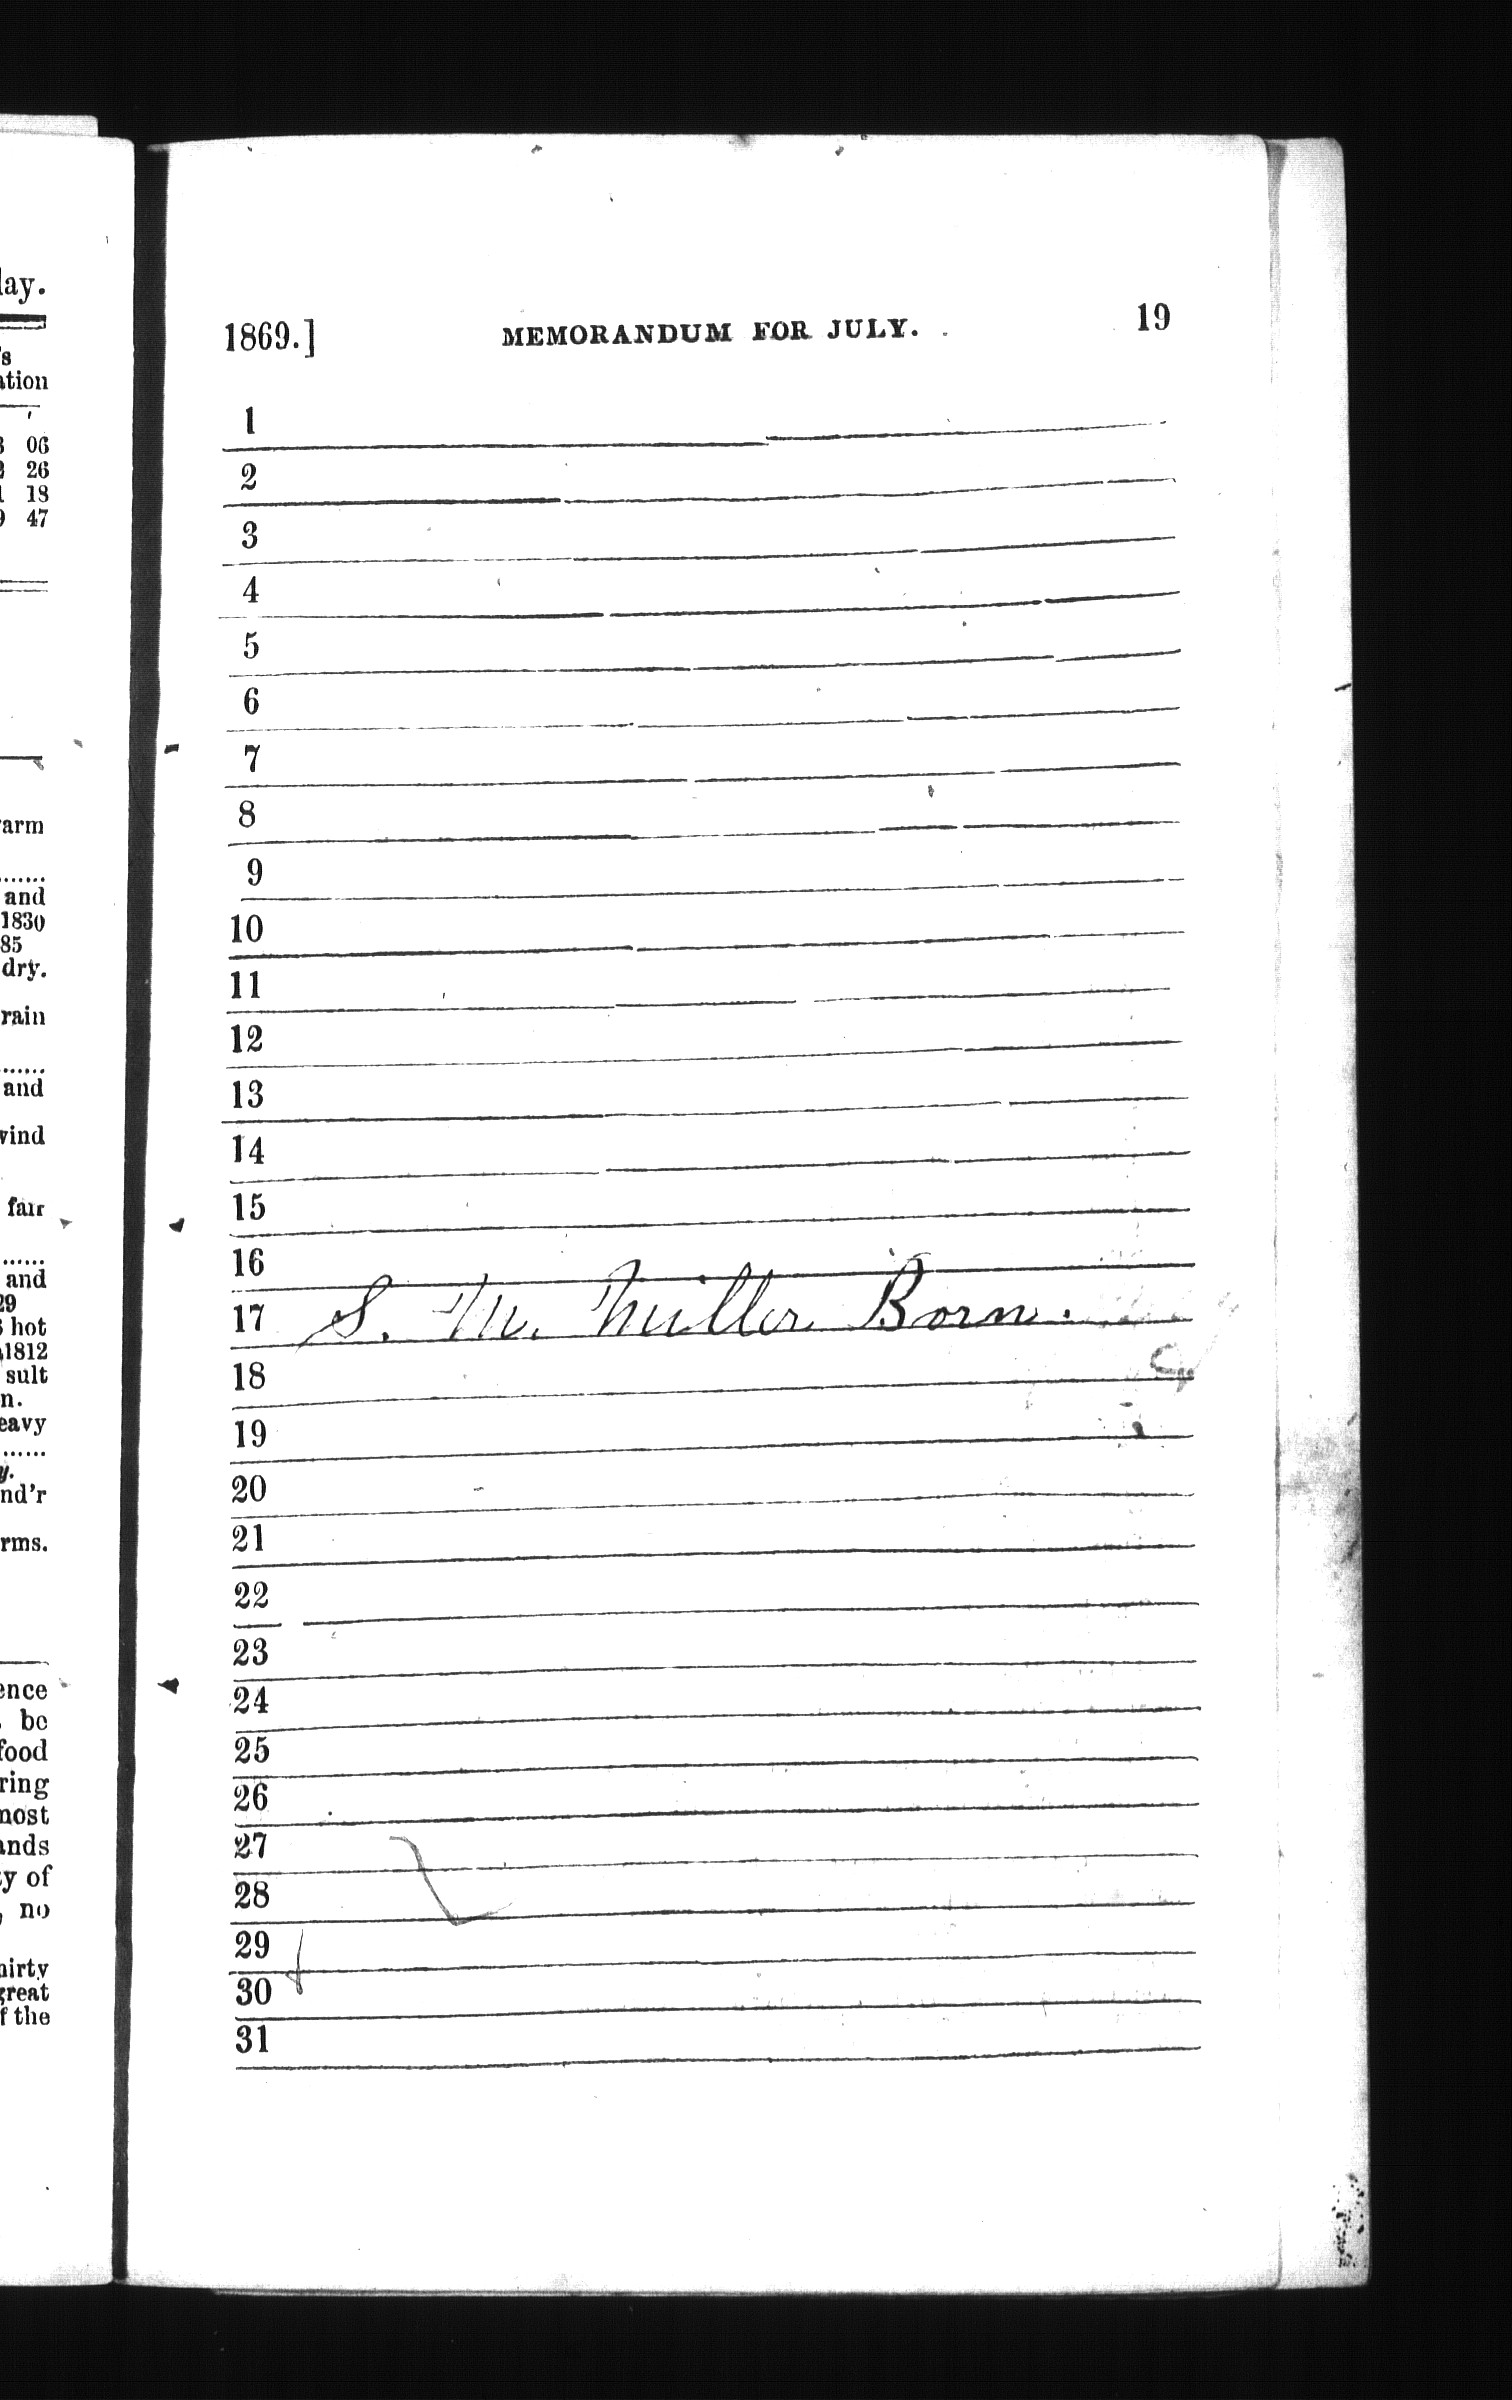 lay.
's
ation
06
26
18
47
arm
and
1830
85
dry.
rain
and
wind
fair
and
29
hot
1812
sult
n.
eavy
y.
nd'r
rms.
ence
be
food
ring
most
ands
ty of
, no
hirty
great
f the
1869.] MEMORANDUM FOR JULY. 19
1
2
3
4
5
6
7
8
9
10
11
12
13
14
15
16
17 S. M. Miller Born.
18
19
20
21
22
23
24
25
26
27
28
29
30
31